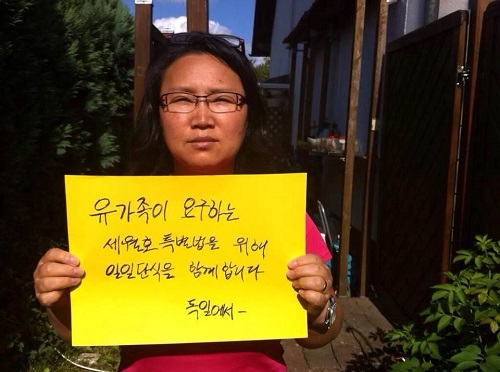 유가족이 요구하는
세월호 특별법을 위해
일일단식을 함께 합니다
독일에서-